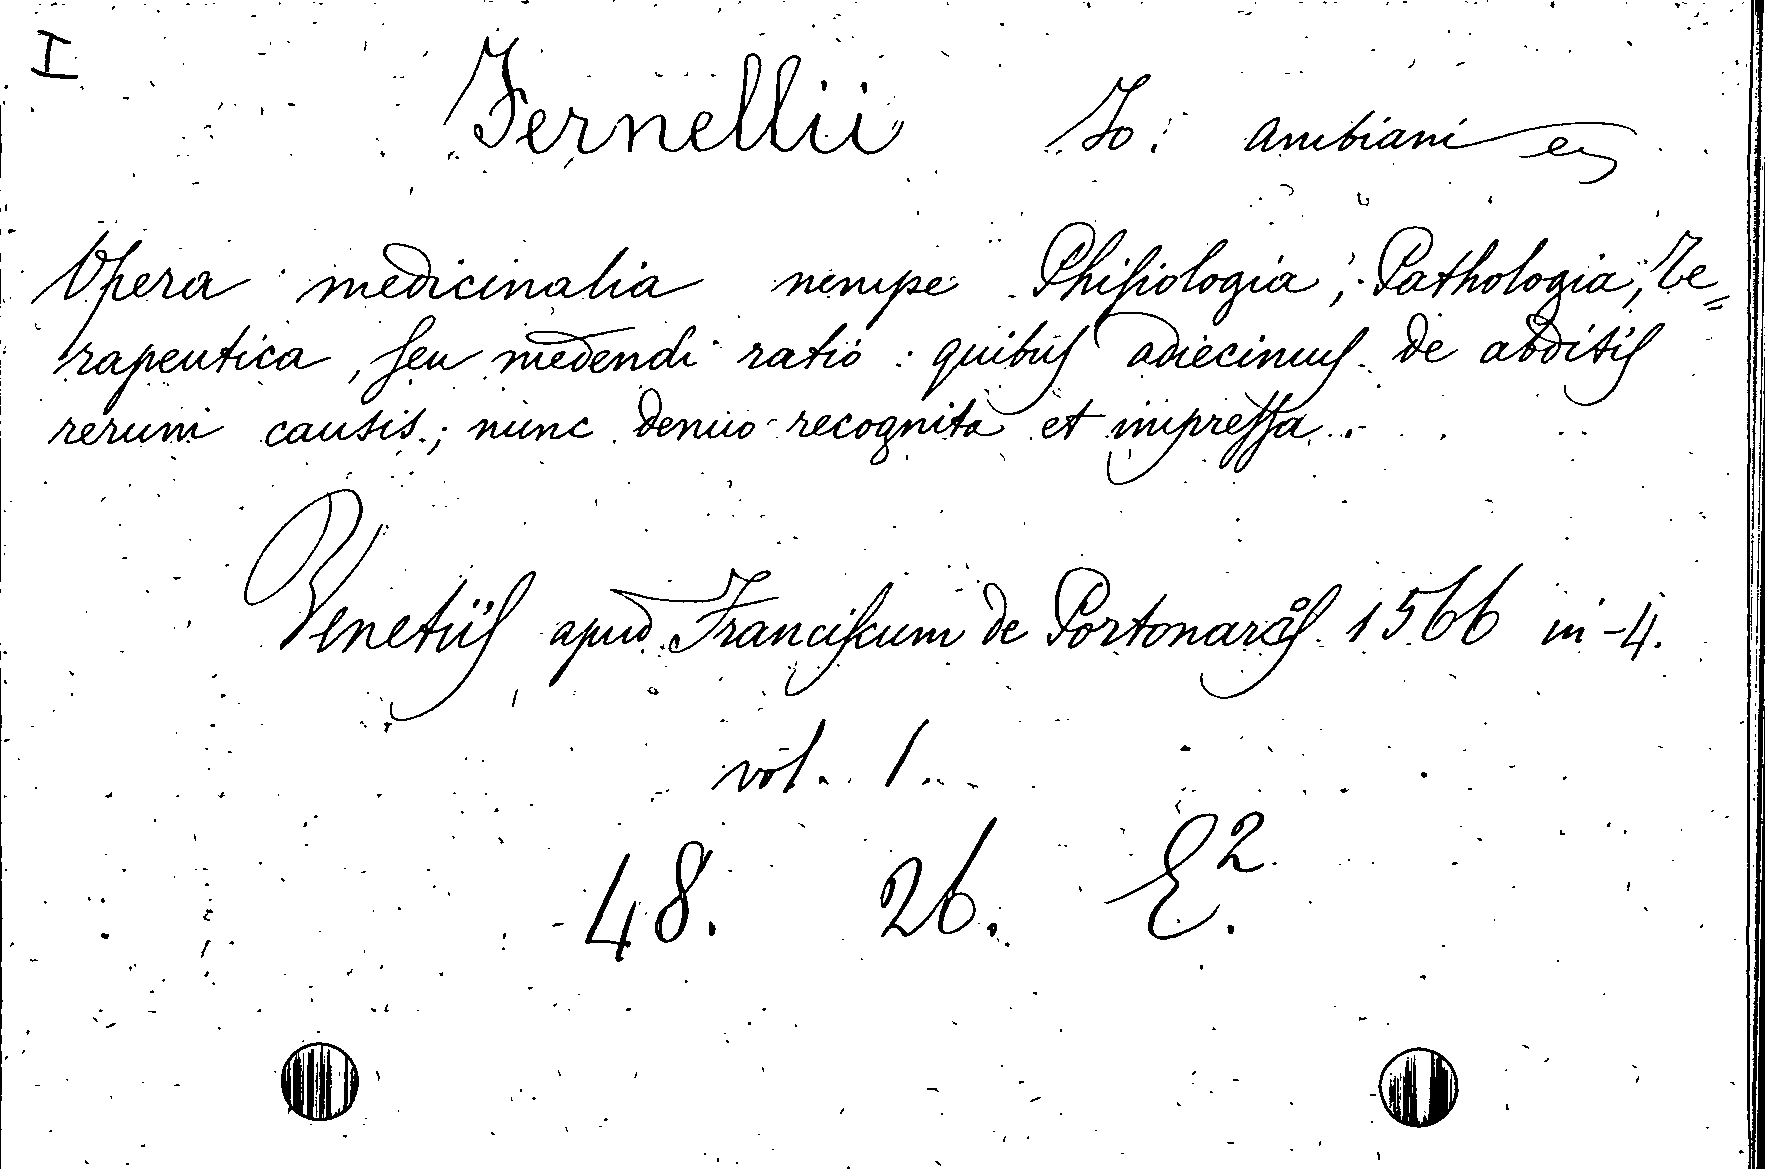 I
Fernellii Jo: Ambiani
Opera medicinalia nempe Phisiologia, Pathologia, Te=
rapeutica, seu medendi ratio: quibus adiecimus de abditis
rerum causis; nunc denuo recognita et impressa.
Venetiis apud Franciscum de Portonariis 1566 in-4.
vol. 1.
48. 26. E2.